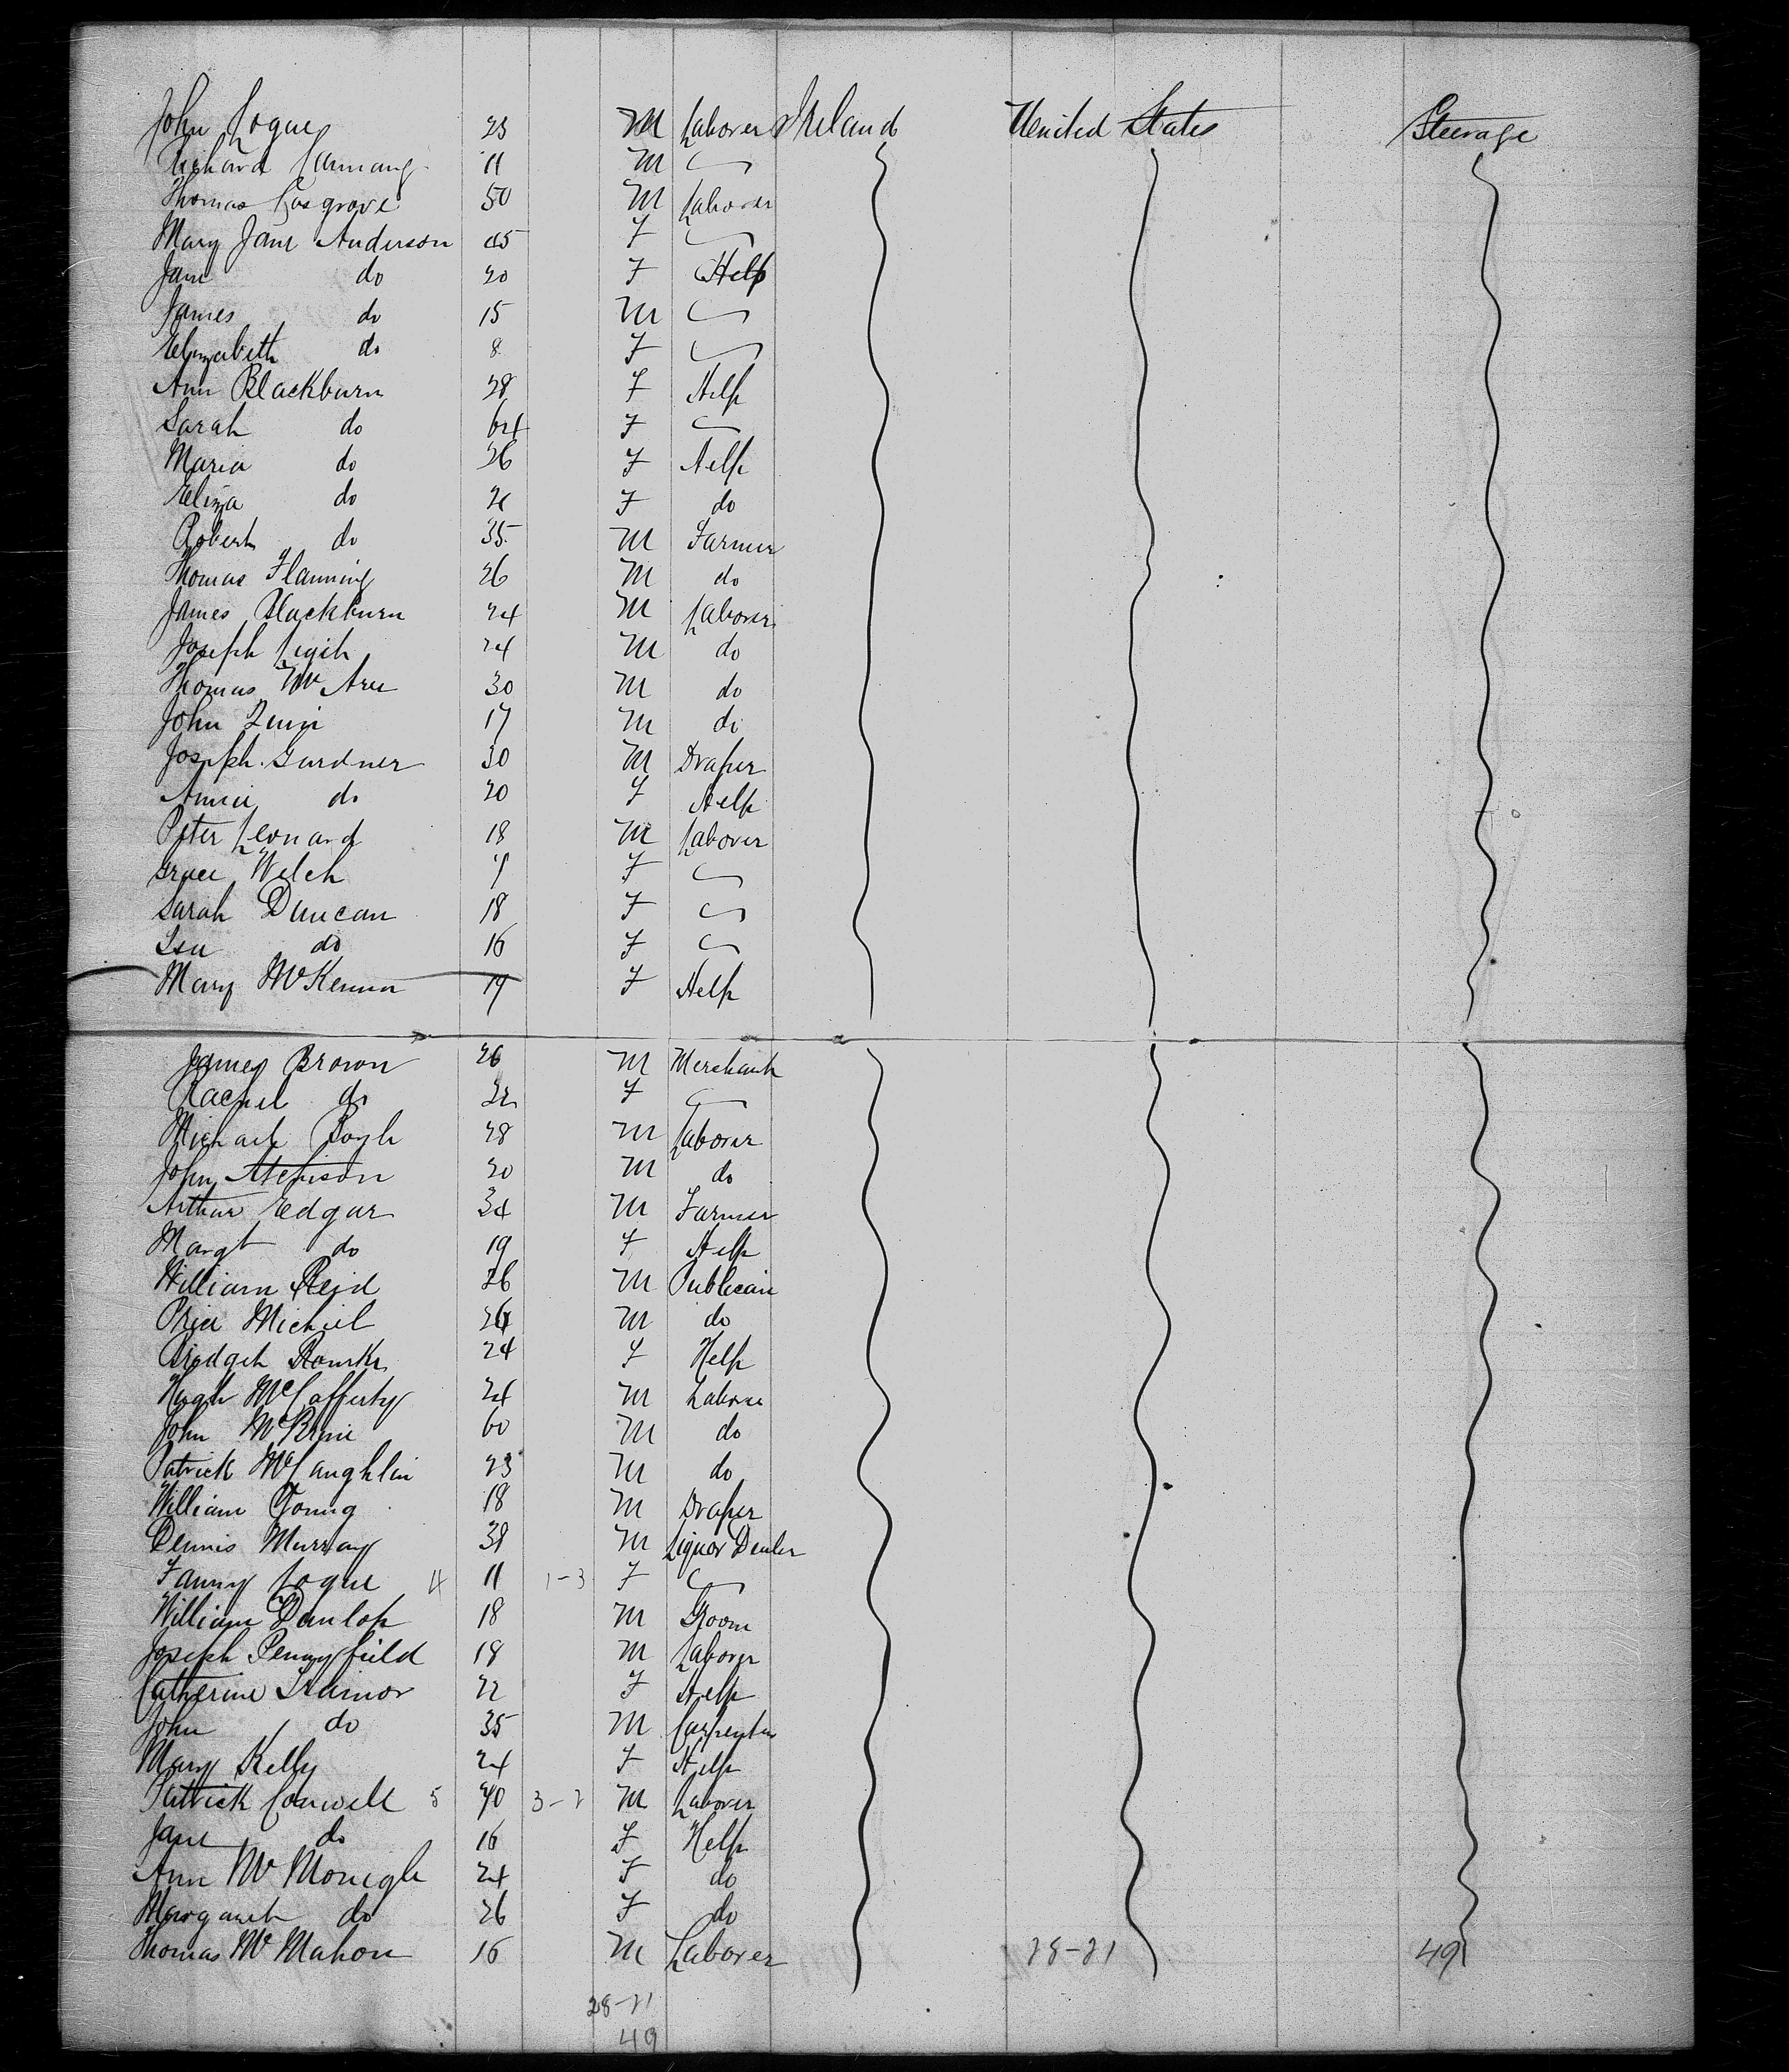 John Logue 23 M Laborer Ireland United States Steerage
Richard 11 M
Thomas Cosgrove 50 M Laborer
Mary Jane Anderson 45 F
Jane do 20 F Help
James do 15 M
Elizabeth do 8 F
Ann Blackburn 28 F Help
Sarah do 64 F
Maria do 26 F Help
Eliza do F do
Robert do 35 M Farmer
Thomas Flanning 26 M do
James Blackburn 24 M Laborer
Joseph 24 M do
Thomas 30 M do
John 17 M do
Joseph Gardner 30 M Draper
Annie do 20 F Help
Peter Leonard 18 M Laborer
Grace Welch F
Sarah Duncan 18 F
do 16 F
Mary McKenna 19 F Help
James Brown 26 M Merchant
Rachel do 22 F
Michael Boyle 28 M Laborer
John Atchison 20 M do
Arthur Edgar 34 M Farmer
Margt do 19 F Help
William Reid 26 M Publican
Price Michiel M do
Bridget Rourke 24 F Help
Hugh McCafferty 24 M Laborer
John 60 M do
Patrick McLaughlin 23 M do
William Young 18 M Draper
Dennis Murray M Liquor Dealer
Fanny Logue 4 11 1-3 F
William Dunlop 18 M Groom
Joseph Pennyfield 18 M Laborer
Catherine Trainor 22 F Help
John do 35 M Carpenter
Mary Kelly 24 F Help
Patrick Conwell 5 40 3-2 M Laborer
Jane do 16 F Help
Ann McMonegle 24 F do
Margaret do 26 F do
Thomas McMahon 16 M Laborer 28-21 49
28-21
49